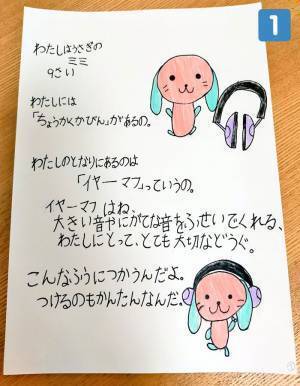 1
わたしはうさぎの
ミミ
9さい
わたしには
「ちょうかくかびん」があるの。
わたしのとなりにあるのは
「イヤーマフ」っていうの。
イヤーマフはね、
大きい音やにがてな音をふせいでくれる、
わたしにとって、とても大切などうぐ。
こんなふうにつかうんだよ。
つけるのもかんたんなんだ。